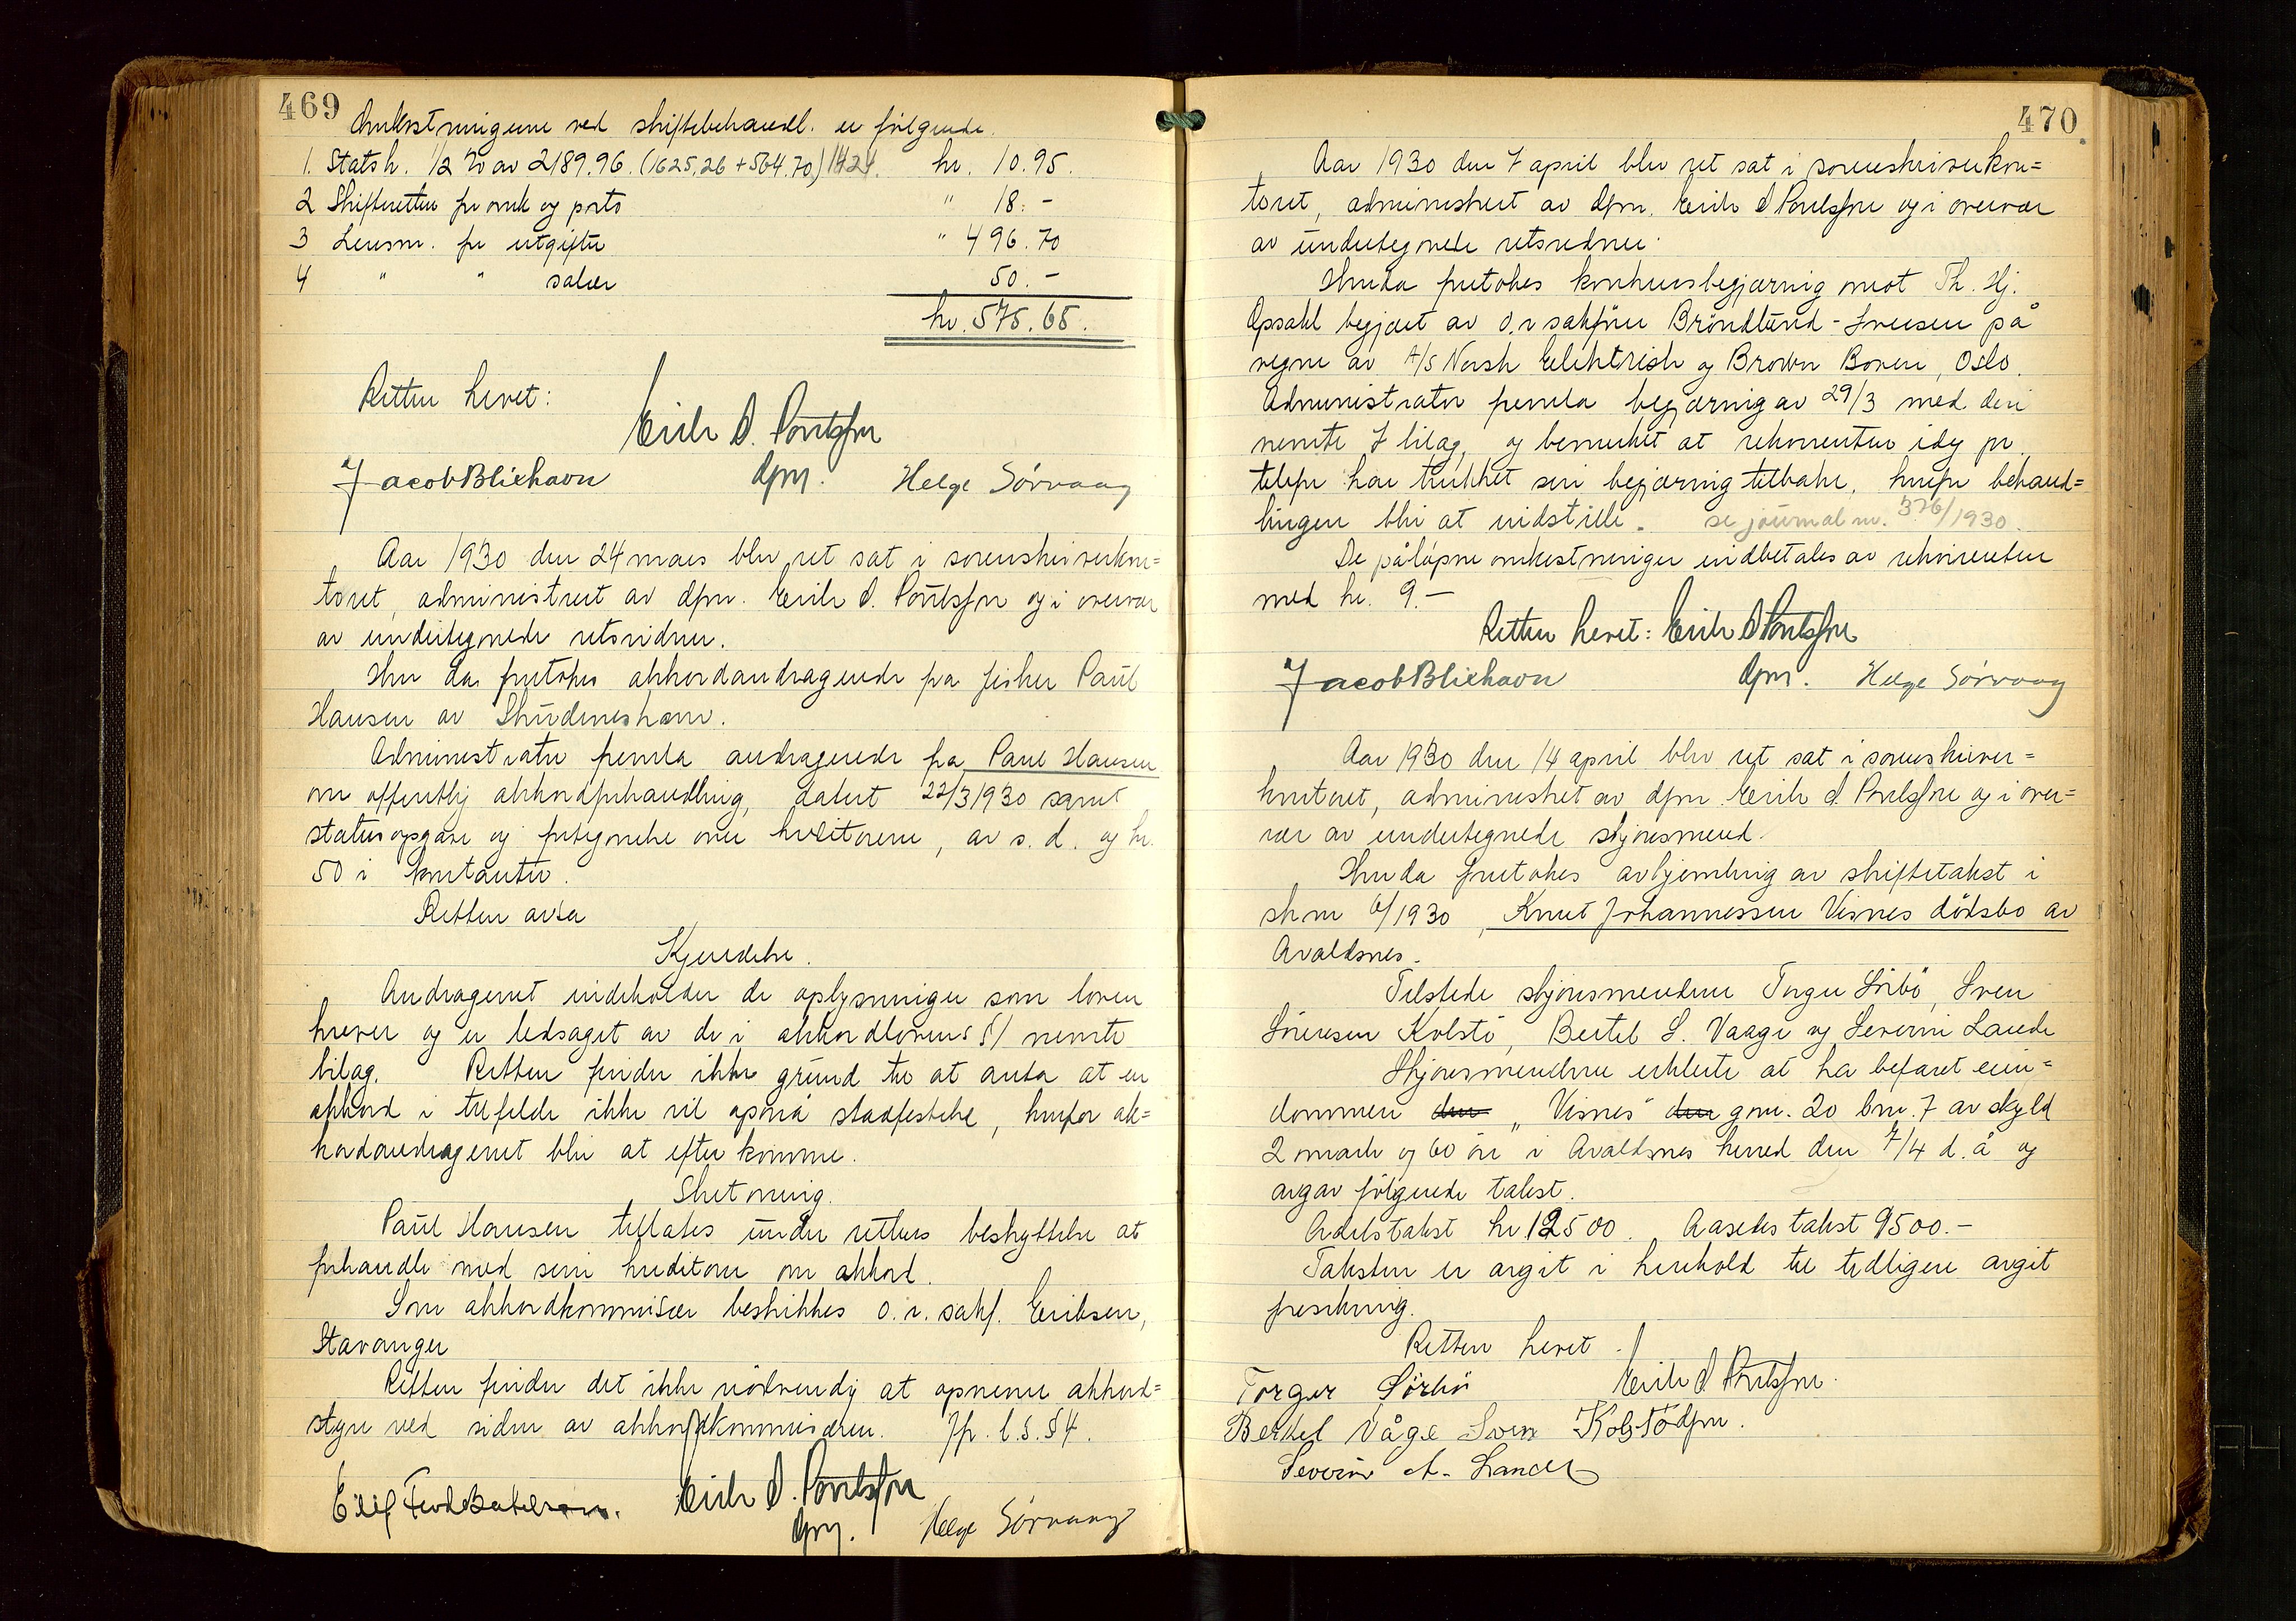 469
Omkostningene ved skiftebehandl. er følgende.
1. Statsk. 1/2 % av 2189.96. (1625.26 + 564.70) 1424. kr. 10.95.
2 Skifteretten for omk og porto " 18.-
3 Lensm. for utgifter " 496.70
4 " " salær 50.-
kr. 575.65.
Retten hevet:
Erik S. Poulsson
Jacob Blikhavn dfm. Helge Sørvaag
Aar 1930 den 24 mars blev ret sat i sorenskriverkon=
toret, administrert av dfm. Erik S. Poulsson og i overvær
av undertegnede retsvidner.
Her da foretokes akkordandragende fra fisker Paul
Hansen av Skudeneshavn.
Administrator fremla andragende fra Paul Hansen
om offentlig akkordforhandling, datert 22/3 1930 samt
statusopgave og fortegnelse over kreditorene, av s. d. og kr.
50 i kontanter.
Retten avsa
Kjendelse.
Andragenet indeholder de oplysninger som loven
krever og er ledsaget av de i akkordlovens § 1 nevnte
bilag. Retten finder ikke grund til at anta at en
akkord i tilfelde ikke vil opnå stadfestelse, hvorfor ak=
kordandragenet blir at efterkomme.
Slutning.
Paul Hansen tillates under rettens beskyttelse at
forhandle med sine kreditorer om akkord.
Som akkordkommisær beskikkes o. r. sakf. Eriksen,
Stavanger
Retten finder det ikke nødvendig at opnevne akkord=
styre ved siden av akkordkommisæren. Jfr. l. s. § 4.
Erik S. Poulsson
dfm. Helge Sørvaag
470
Aar 1930 den 7 april blev ret sat i sorenskriverkon=
toret, administrert av dfm. Erik S Poulsson og i overvær
av undertegnede retsvidner.
Her da foretokes konkursbegjæring mot Th. Hj.
Opsahl begjært av o. r sakfører Bröndlund-Iversen på
vegne av A/S Norsk Elektrisk og Brown Boveri, Oslo.
Administrator fremla begjæring av 29/3 med deri
nevnte 7 bilag, og bemerket at rekvirenten idag pr.
telefon har trukket sin begjæring tilbake, hvorfor behand=
lingen blir at indstille. se journal nr. 376/1930.
De påløpne omkostninger indbetales av rekvirenten
med kr. 9.-
Retten hevet: Erik S Poulsson
Jacob Blikhavn dfm. Helge Sørvaag
Aar 1930 den 14 april blev ret sat i sorenskriver=
kontoret, administret av dfm. Erik S. Poulsson og i over=
vær av undertegnede skjønsmend.
Her da foretokes avhjemling av skiftetakst i
sk nr 6/1930, Knut Johannessen Visnes dödsbo av
Avaldsnes.
Tilstede skjønsmendene Torger Sörbö, Sven
Sörensen Kolstö, Bertel S. Vaage og Severin Lande
Skjønsmendene erklærte at ha befaret eien=
dommen den „Visnes" den gnr. 20 bnr. 7 av skyld
2 mark og 60 øre i Avaldsnes herred den 7/4 d. å og
avgav følgende takst.
Odelstakst kr 12500. Aasetestakst 9500.-
Taksten er avgit i henhold til tidligere avgit
forsikring.
Retten hevet.
Torger Sörbö Erik S. Poulsson.
Bertel Våge Sven Kolstö dfm.
Severin A. Lande